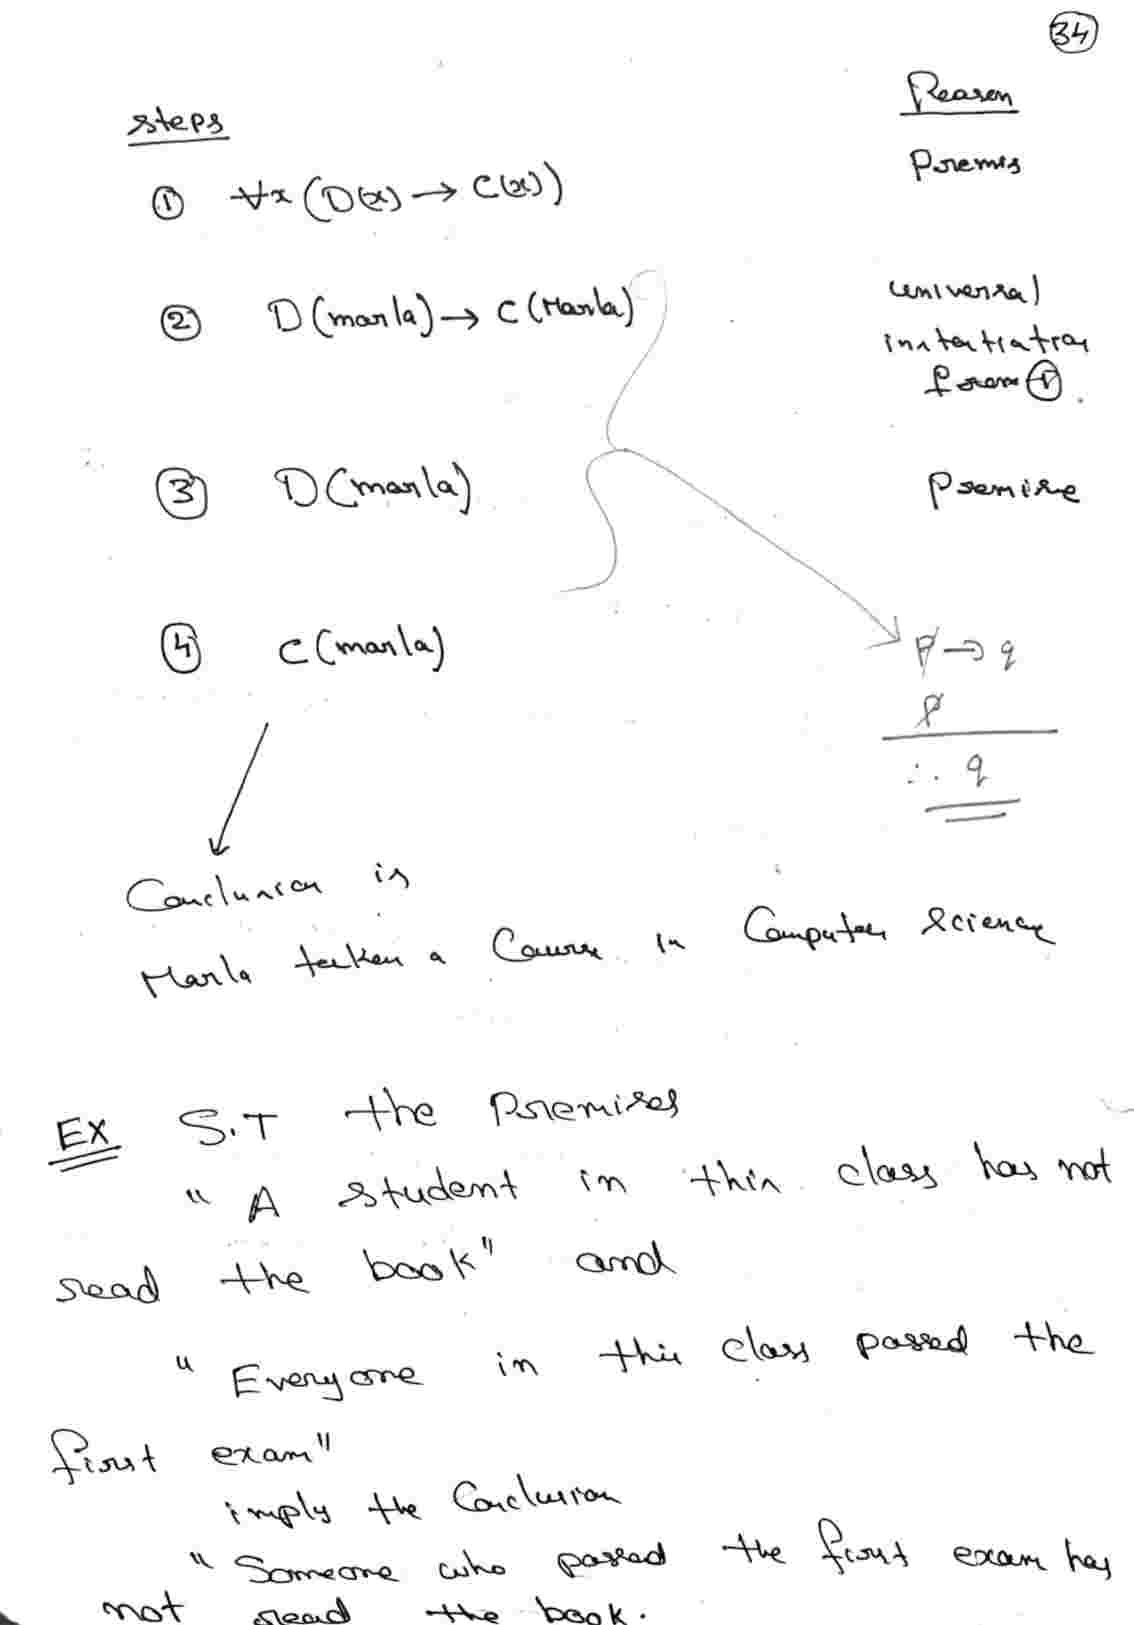 34
steps Reason
① ∀x (D(x) → C(x)) Premis
② D(marla) → C(Marla) universal
instantiation
from ①.
③ D(marla) Premise
④ C(marla) p → q
p
∴ q
Conclusion is
Marla taken a Course in Computer Science
EX S.T the Premises
" A student in this class has not
read the book" and
" Everyone in this class passed the
first exam"
imply the Conclusion
" Someone who passed the first exam has
not read the book.